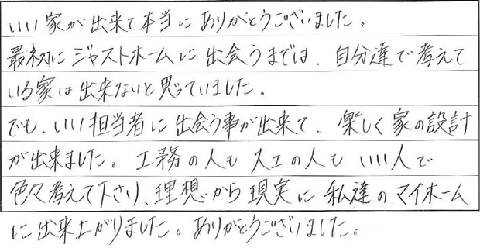 いい家が出来て本当にありがとうございました。
最初にジャストホームに出会うまでは、自分達で考えて
いる家は出来ないと思っていました。
でも、いい担当者に出会う事が出来て、楽しく家の設計
が出来ました。工務の人も大工の人もいい人で
色々考えて下さり、理想から現実に私達のマイホーム
に出来上がりました。ありがとうございました。